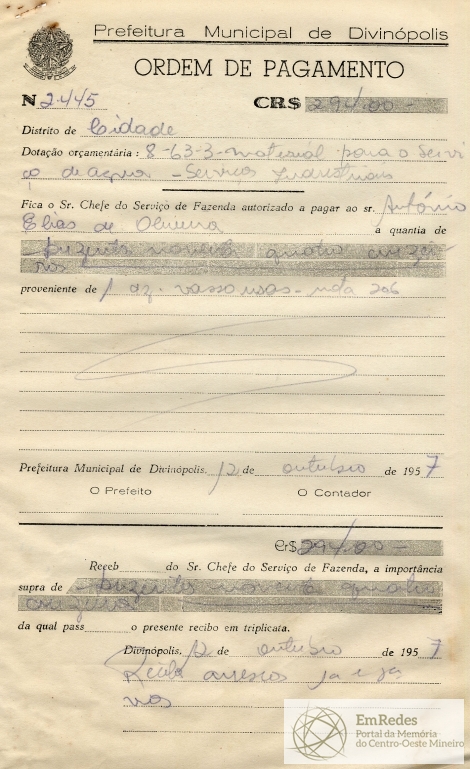 Prefeitura Municipal de Divinópolis
ORDEM DE PAGAMENTO
N 2.445 CR$ 294,00-
Distrito de Cidade
Dotação orçamentária: 8-63-3-material para o Servi
ço de agua - Serviços Industriais
Fica o Sr. Chefe do Serviço de Fazenda autorizado a pagar ao sr. António
Elias de Oliveira a quantia de
duzentos noventa quatro cruzei
ros
proveniente de 1 dz. vassouras - nota 206
Prefeitura Municipal de Divinópolis, 12 de outubro de 1957
O Prefeito O Contador
Cr$ 294,00-
Receb do Sr. Chefe do Serviço de Fazenda, a importância
supra de duzentos noventa quatro
cruzeiros
da qual pass o presente recibo em triplicata.
Divinópolis, 12 de outubro de 1957
EmRedes
Portal da Memória
do Centro-Oeste Mineiro